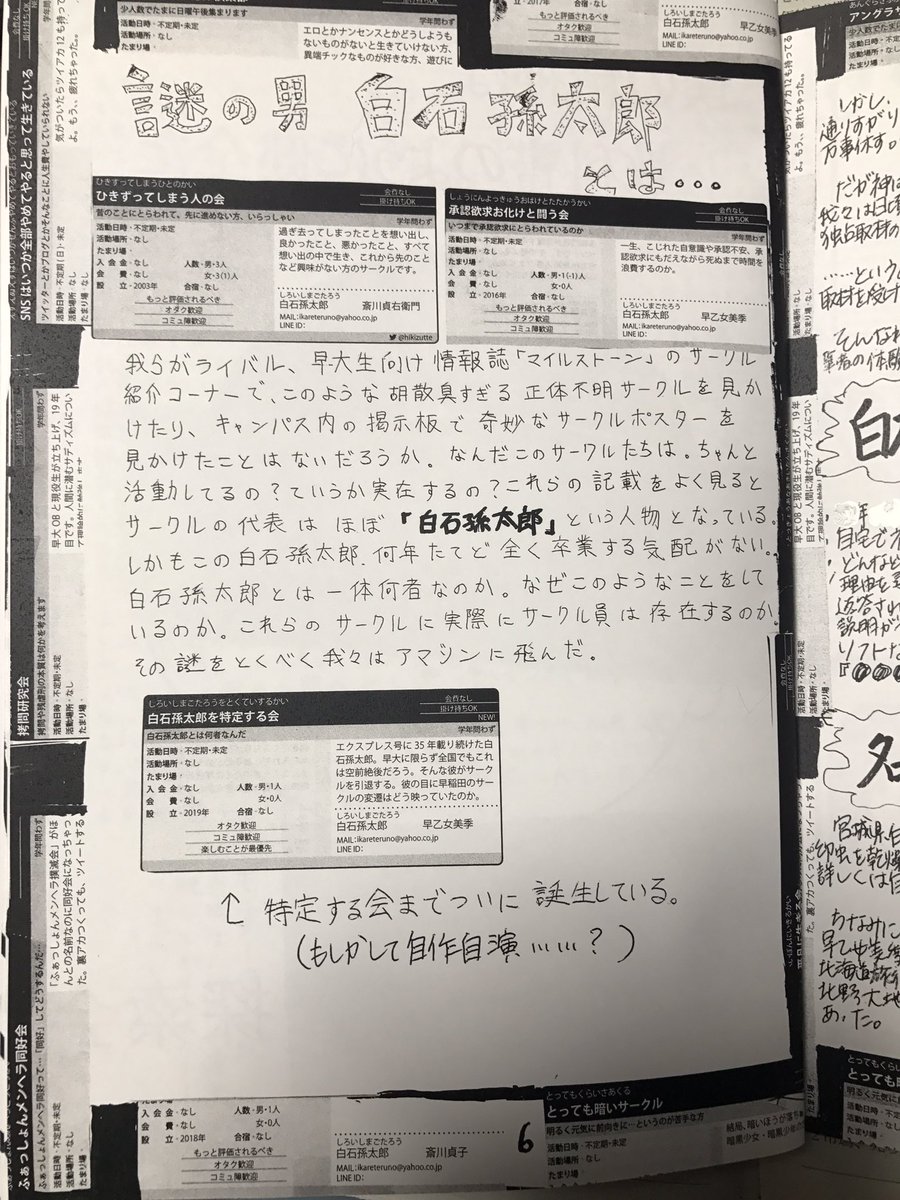 少人数でたまに日曜午後集まります
学年問わず
活動日時・不定期・未定
活動場所・なし
たまり場・
エロとかナンセンスとかどうしようも
ないものがないと生きていけない方、
異端チックなものが好きな方、遊びに
もっと評価されるべき
オタク歓迎
コミュ障歓迎
しろいしまごたろう
白石孫太郎 早乙女美季
MAIL:ikareteruno@yahoo.co.jp
LINE ID:
謎の男 白石孫太郎
とは…
ひきずってしまうひとのかい
ひきずってしまう人の会
会報なし
掛け持ちOK
昔のことにとらわれて、先に進めない方、いらっしゃい
学年問わず
活動日時・不定期・未定
活動場所・なし
たまり場・
入会金・なし 人数・男・3人
会費・なし 女・3(1)人
設立・2003年 合宿・なし
もっと評価されるべき
オタク歓迎
コミュ障歓迎
過ぎ去ってしまったことを想い出し、
良かったこと、悪かったこと、すべて
想い出の中で生き、これから先のこと
など興味がない方のサークルです。
しろいしまごたろう
白石孫太郎 斎川貞右衛門
MAIL:ikareteruno@yahoo.co.jp
LINE ID:
@hikizutte
しょうにんよっきゅうおばけとたたかうかい
承認欲求お化けと闘う会
会報なし
掛け持ちOK
いつまで承認欲求にとらわれているのか
学年問わず
活動日時・不定期・未定
活動場所・なし
たまり場・
入会金・なし 人数・男・1(-1)人
会費・なし 女・0人
設立・2016年 合宿・なし
もっと評価されるべき
オタク歓迎
コミュ障歓迎
一生、こじれた自意識や承認不安、承
認欲求にもだえながら死ぬまで時間を
浪費するのか。
しろいしまごたろう
白石孫太郎 早乙女美季
MAIL:ikareteruno@yahoo.co.jp
LINE ID:
我らがライバル、早大生向け情報誌「マイルストーン」のサークル
紹介コーナーで、このような胡散臭すぎる正体不明サークルを見か
けたり、キャンパス内の掲示板で奇妙なサークルポスターを
見かけたことはないだろうか。なんだこのサークルたちは。ちゃんと
活動してるの?ていうか実在するの?これらの記載をよく見ると
サークルの代表はほぼ「白石孫太郎」という人物となっている。
しかもこの白石孫太郎、何年たてど全く卒業する気配がない。
白石孫太郎とは一体何者なのか。なぜこのようなことをして
いるのか。これらのサークルに実際にサークル員は存在するのか。
その謎をとくべく我々はアマゾンに飛んだ。
しろいしまごたろうをとくていするかい
白石孫太郎を特定する会
会報なし
掛け持ちOK
NEW!
白石孫太郎とは何者なんだ
学年問わず
活動日時・不定期・未定
活動場所・なし
たまり場・
入会金・なし 人数・男・1人
会費・なし 女・0人
設立・2019年 合宿・なし
オタク歓迎
コミュ障歓迎
楽しむことが最優先
エクスプレス号に35年載り続けた白
石孫太郎。早大に限らず全国でもこれ
は空前絶後だろう。そんな彼がサーク
ルを引退する。彼の目に早稲田のサー
クルの変遷はどう映っていたのか。
しろいしまごたろう
白石孫太郎 早乙女美季
MAIL:ikareteruno@yahoo.co.jp
LINE ID:
↑特定する会までついに誕生している。
(もしかして自作自演……?)
入会金・なし 人数・男・1人
会費・なし 女・0人
設立・2018年 合宿・なし
もっと評価されるべき
オタク歓迎
コミュ障歓迎
しろいしまごたろう
白石孫太郎 斎川貞子
MAIL:ikareteruno@yahoo.co.jp
LINE ID:
6
とってもくらいさあくる
とっても暗いサークル
明るく元気に前向きに…というのが苦手な方
活動日時・不定期・未定
活動場所・なし
たまり場・
SNSはいつか全部やめてやると思って生きている
ツイッターとかブログとかそんなことに人生費やしていられない
活動日時・不定期(日)・未定
活動場所・なし
たまり場・
気がついたらツイアカ12も持って
よ。もう、、疲れちゃった。。
拷問研究会
拷問や残虐刑の本質は何かを考えます
学年問わず
活動日時・不定期・未定
活動場所・なし
たまり場・
早大OBと現役生が立ち上げ、19年
目です。人間に潜むサディズムについ
ふぁっしょんメンヘラ同好会
「同好」って…「同好」してどうするんだ…
学年問わず
活動日時・不定期・未定
活動場所・なし
たまり場・
「ふぁっしょんメンヘラ撲滅会」がほ
んとの名前なのに同好会になっちゃっ
た。裏アカつくっても、ツイートする
しかし、
通りすがり
万事休す。
だが神は
我々は日
独占取材の
……という
取材を受け
そんなわ
筆者の体験